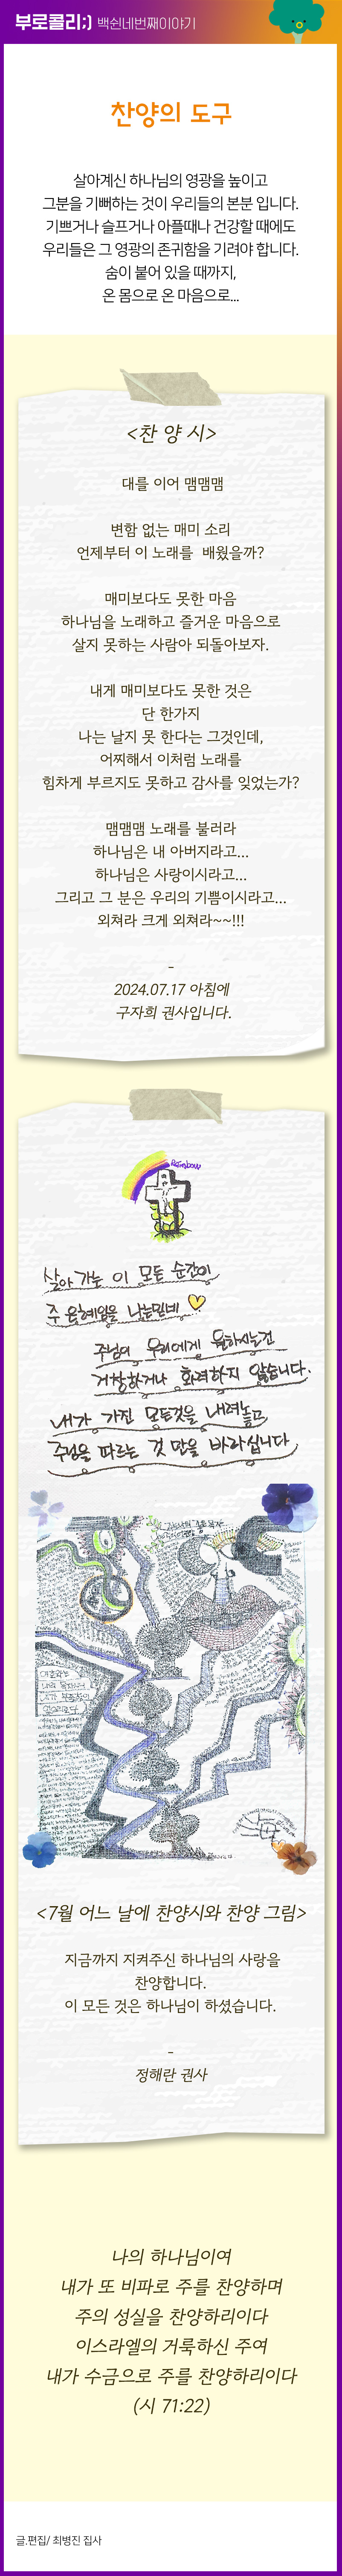 부로콜리;) 백쉰네번째이야기
찬양의 도구
살아계신 하나님의 영광을 높이고
그분을 기뻐하는 것이 우리들의 본분 입니다.
기쁘거나 슬프거나 아플때나 건강할 때에도
우리들은 그 영광의 존귀함을 기려야 합니다.
숨이 붙어 있을 때까지,
온 몸으로 온 마음으로...
<찬 양 시>
대를 이어 맴맴맴
변함 없는 매미 소리
언제부터 이 노래를 배웠을까?
매미보다도 못한 마음
하나님을 노래하고 즐거운 마음으로
살지 못하는 사람아 되돌아보자.
내게 매미보다도 못한 것은
단 한가지
나는 날지 못 한다는 그것인데,
어찌해서 이처럼 노래를
힘차게 부르지도 못하고 감사를 잊었는가?
맴맴맴 노래를 불러라
하나님은 내 아버지라고...
하나님은 사랑이시라고...
그리고 그 분은 우리의 기쁨이시라고...
외쳐라 크게 외쳐라~~!!!
-
2024.07.17 아침에
구자희 권사입니다.
Rainbow
살아 가는 이 모든 순간이
주 은혜임을 나는 믿네
주님이 우리에게 원하시는건
거창하거나 화려하지 않습니다.
내가 가진 모든것을 내려놓고
주님을 따르는 것 만을 바라십니다.
<7월 어느 날에 찬양시와 찬양 그림>
지금까지 지켜주신 하나님의 사랑을
찬양합니다.
이 모든 것은 하나님이 하셨습니다.
-
정해란 권사
나의 하나님이여
내가 또 비파로 주를 찬양하며
주의 성실을 찬양하리이다
이스라엘의 거룩하신 주여
내가 수금으로 주를 찬양하리이다
(시 71:22)
글.편집/ 최병진 집사